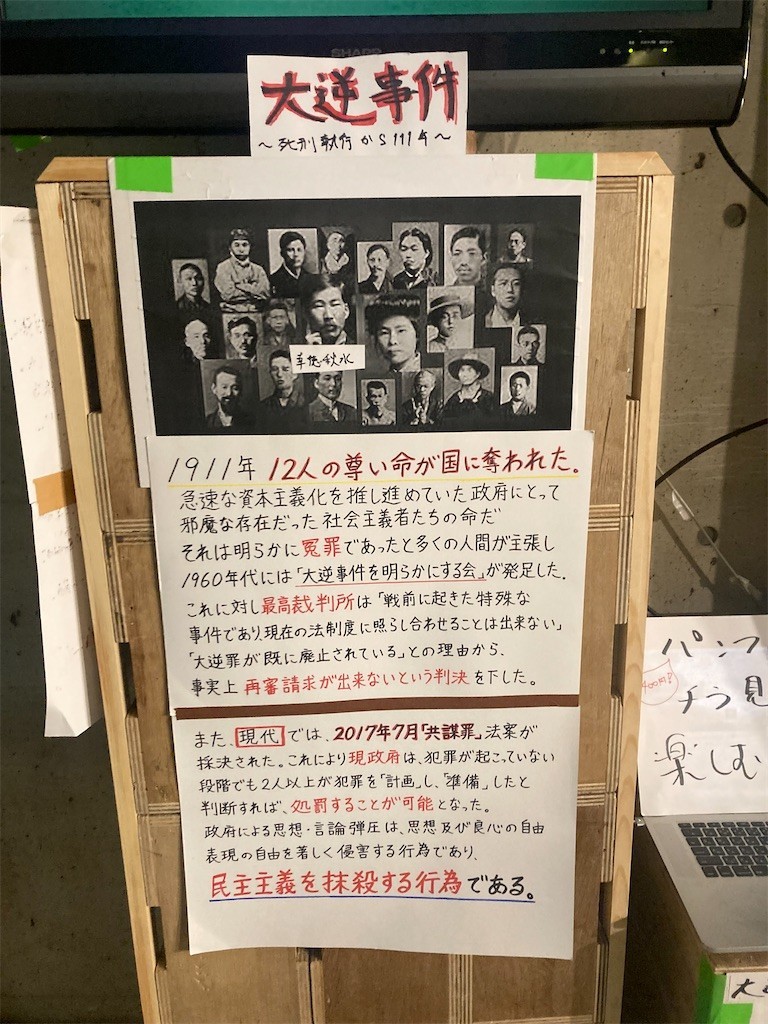 SHARP
大逆事件
〜死刑執行から111年〜
幸徳秋水
1911年 12人の尊い命が国に奪われた。
急速な資本主義化を推し進めていた政府にとって
邪魔な存在だった社会主義者たちの命だ
それは明らかに冤罪であったと多くの人間が主張し
1960年代には「大逆事件を明らかにする会」が発足した。
これに対し最高裁判所は「戦前に起きた特殊な
事件であり、現在の法制度に照らし合わせることは出来ない」
「大逆罪が既に廃止されている」との理由から、
事実上 再審請求が出来ないという判決を下した。
また、現代では、2017年7月「共謀罪」法案が
採決された。これにより現政府は、犯罪が起こっていない
段階でも2人以上が犯罪を「計画」し、「準備」したと
判断すれば、処罰することが可能となった。
政府による思想・言論弾圧は、思想及び良心の自由
表現の自由を著しく侵害する行為であり、
民主主義を抹殺する行為である。
パンフ
400円?
チラ見
楽しむ
大